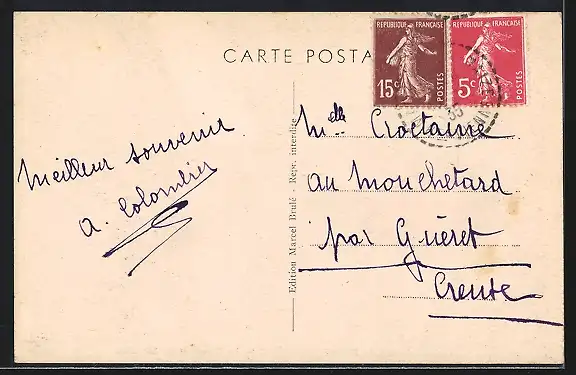 CARTE POSTA
REPUBLIQUE FRANÇAISE
15c
POSTES
REPUBLIQUE FRANÇAISE
5c
POSTES
35
Meilleur souvenir
A. Colombier
Edition Marcel Brulé - Repr. interdite
Melle Croctaine
au Mouchetard
par Guéret
Creuse